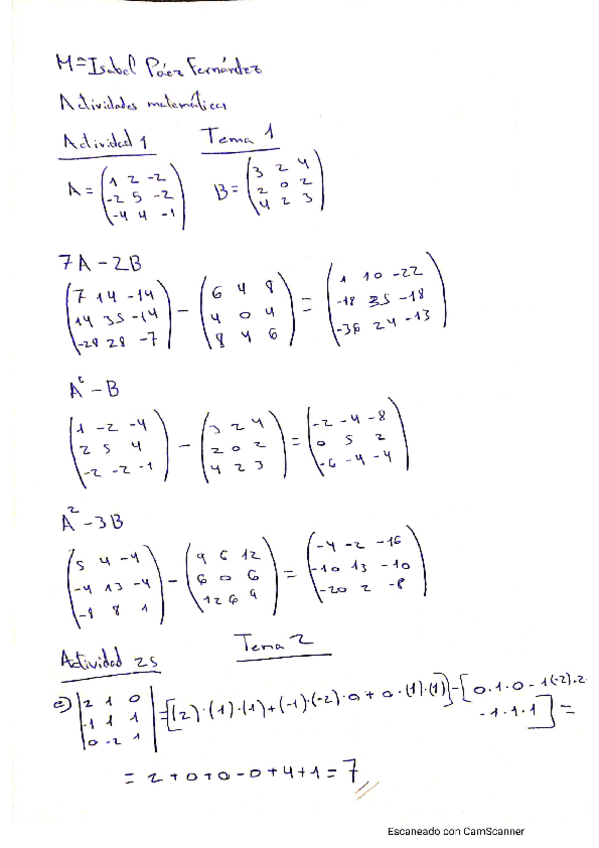 Mª Isabel Páez Fernández
Actividades matemáticas
Actividad 1 Tema 1
A = (1 2 -2 / -2 5 -2 / -4 4 -1) B = (3 2 4 / 2 0 2 / 4 2 3)
7A - 2B
(7 14 -14 / 14 35 -14 / -28 28 -7) - (6 4 8 / 4 0 4 / 8 4 6) = (1 10 -22 / -18 35 -18 / -36 24 -13)
Aᵗ - B
(1 -2 -4 / 2 5 4 / -2 -2 -1) - (3 2 4 / 2 0 2 / 4 2 3) = (-2 -4 -8 / 0 5 2 / -6 -4 -4)
A² - 3B
(5 4 -4 / -4 13 -4 / -8 8 1) - (9 6 12 / 6 0 6 / 12 6 9) = (-4 -2 -16 / -10 13 -10 / -20 2 -8)
Actividad 25 Tema 2
e) |2 1 0 / -1 1 1 / 0 -2 1| = [(2)·(1)·(1)+(-1)·(-2)·0+0·(1)·(1)]-[0·1·0-1(-2)·2
-1·1·1] =
= 2+0+0-0+4+1=7
Escaneado con CamScanner